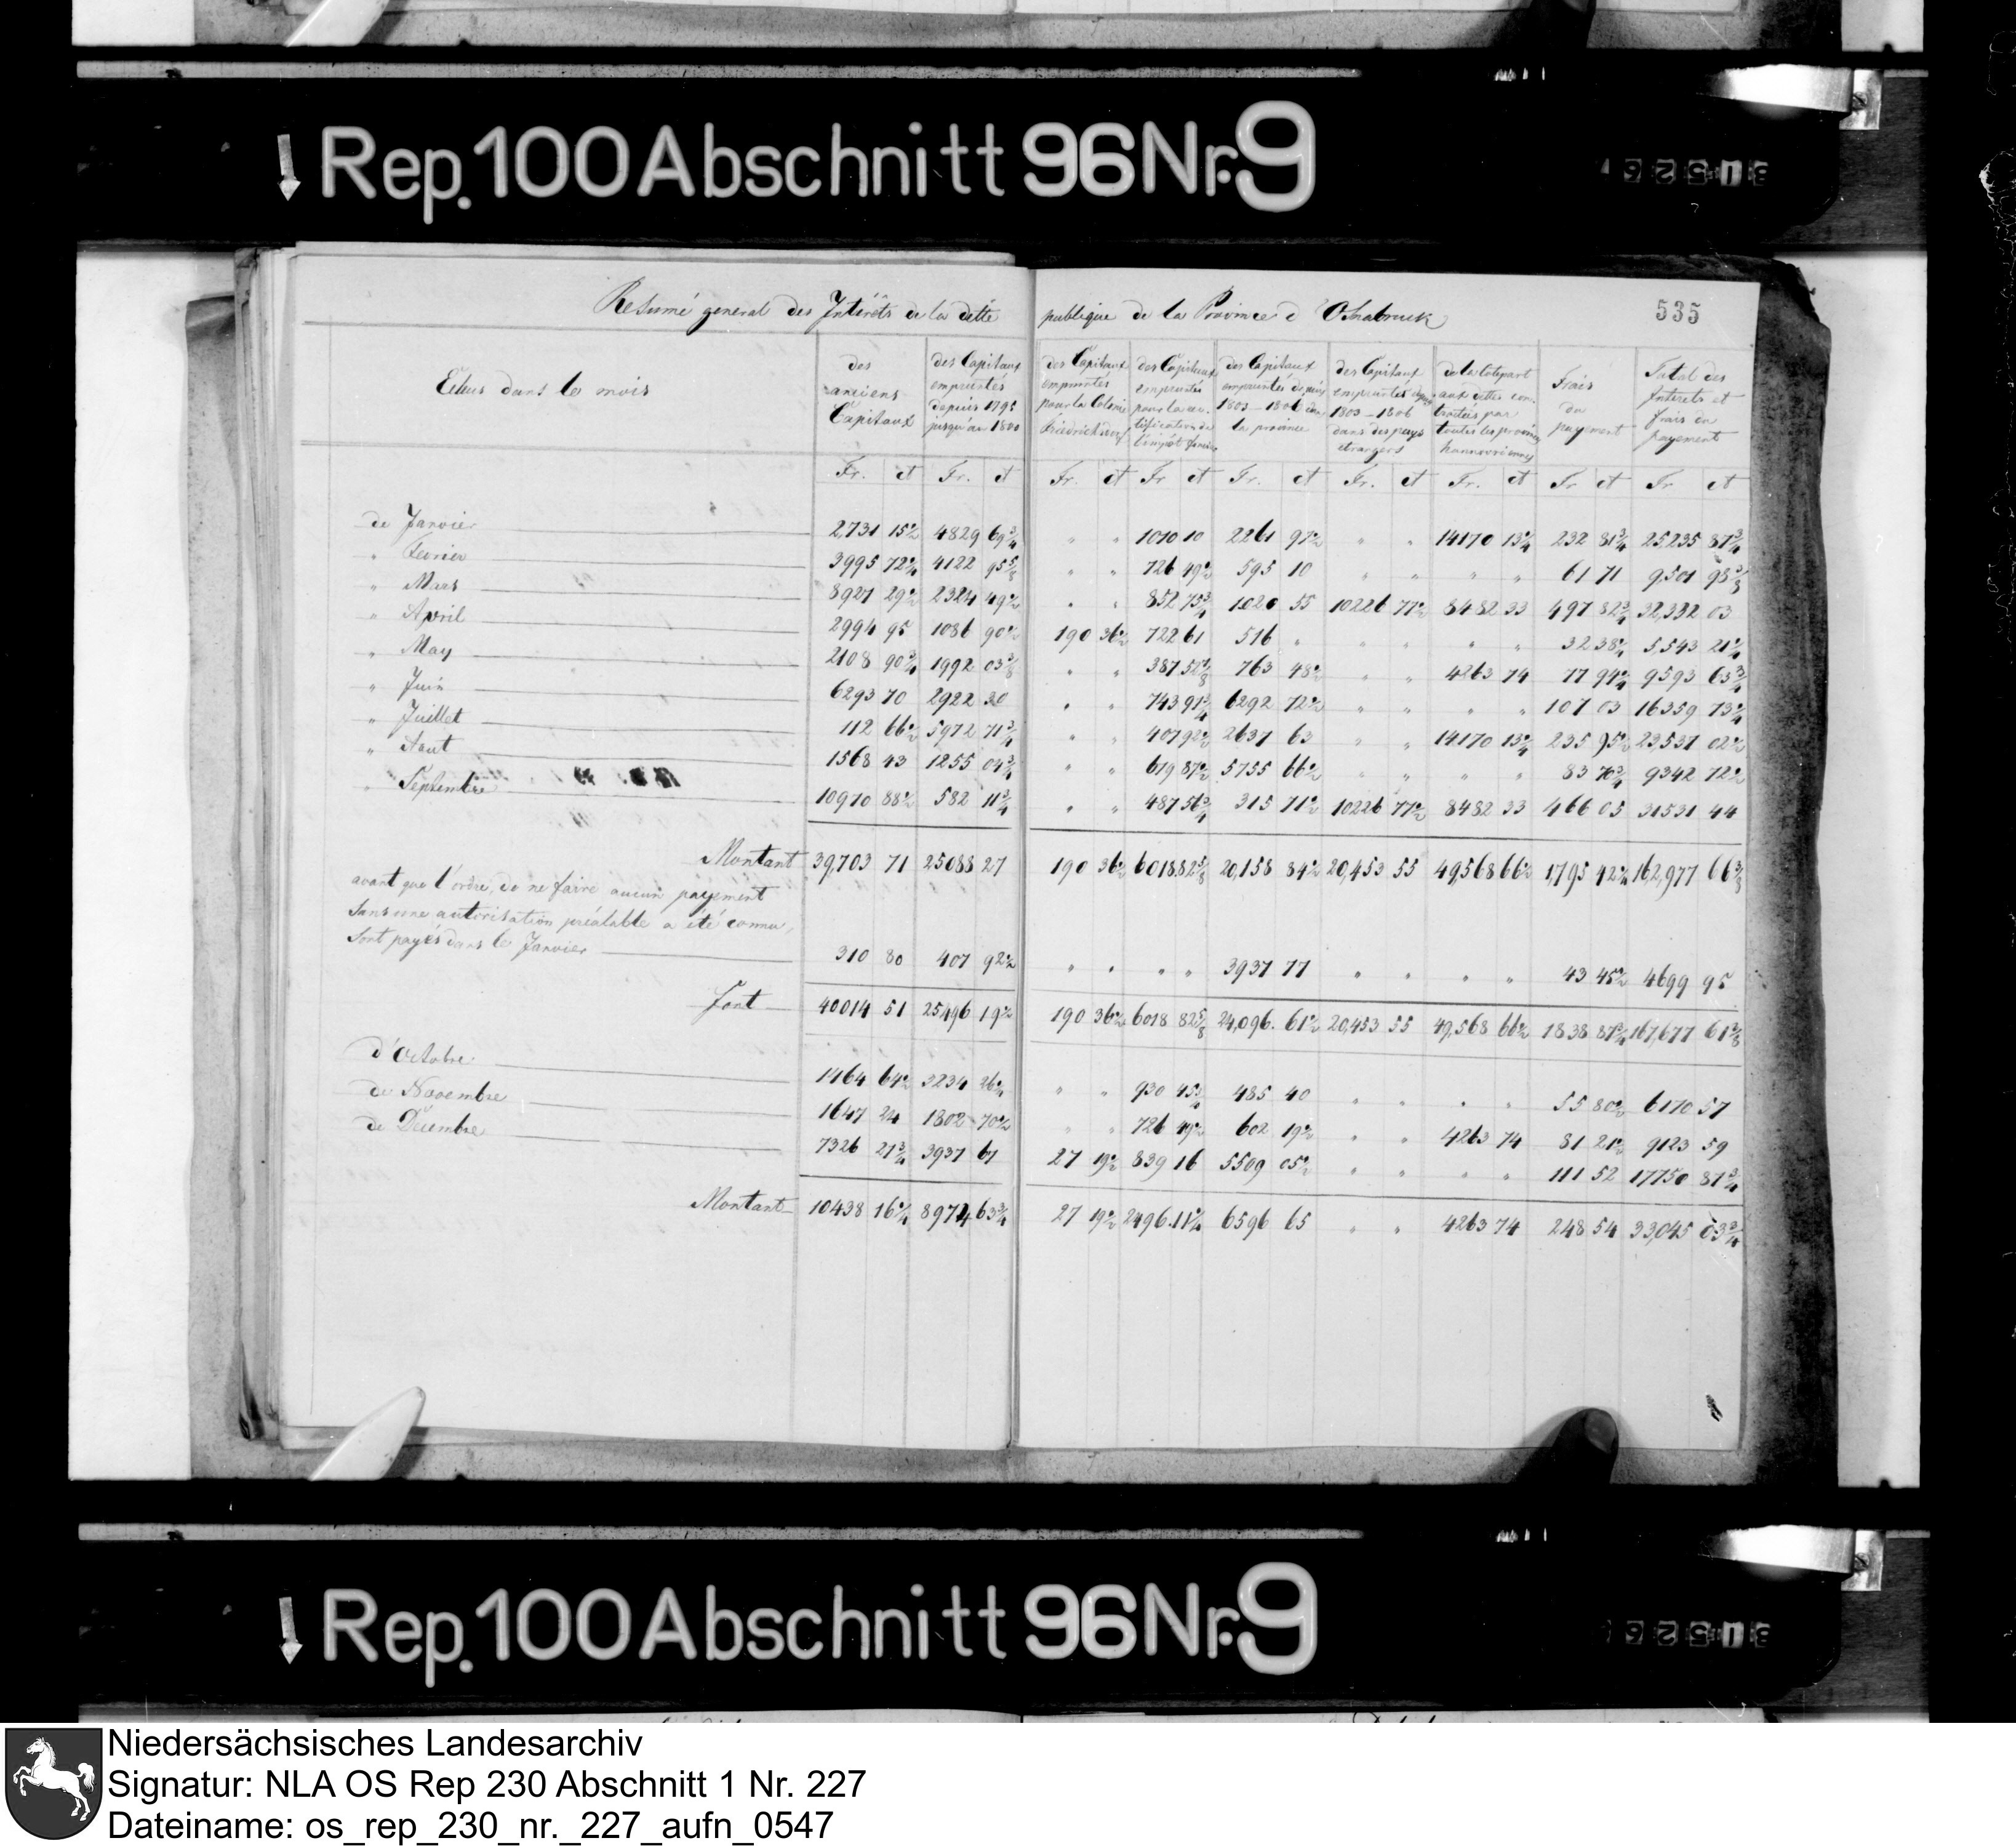 Rep. 100 Abschnitt 96 Nr. 9
Resumé general des Intérêts de la dette publique de la Province d'Osnabruck
535
Echus dans le mois
des anciens Capitaux
des Capitaux empruntés depuis 1795 jusqu'au 1800
des Capitaux empruntés pour la Colonie
des Capitaux empruntés pour la
des Capitaux empruntés depuis 1803–1806 dans la province
des Capitaux empruntés depuis 1803–1806 dans des pays etrangers
de la cotepart aux dettes contractés par toutes les provinces hannovriennes
Frais du payement
Total des Intérêts et frais du payement
Fr. ct Fr. ct Fr. ct Fr ct Fr. ct Fr. ct Fr. ct Fr ct Fr ct
de Janvier 2,731 15½ 4829 69¾ " " 1010 10 2261 97½ " " 14170 13¼ 232 81¾ 25,235 87¾
" Fevrier 3995 72¼ 4122 95⅝ " " 726 49½ 595 10 " " " " 61 71 9,501 98⅜
" Mars 8927 29½ 2324 49½ " " 852 73¾ 1020 55 10226 77½ 8482 33 497 82¾ 32,332 03
" Avril 2994 95 1086 90½ 190 36½ 722 61 516 " " " " " 32 38¼ 5,543 21¼
" May 2108 90¾ 1992 03⅜ " " 387 52⅛ 763 48½ " " 4263 74 77 94¼ 9593 63¾
" Juin 6293 70 2922 30 " " 743 91¾ 6292 72½ " " " " 107 03 16359 73¼
" Juillet 112 66½ 5972 71¾ " " 407 92½ 2637 63 " " 14170 13¼ 235 95½ 23,537 02½
" Aout 1568 43 1255 04¾ " " 679 87½ 5755 66½ " " " " 83 70¾ 9342 72½
" Septembre 10970 88½ 582 11¾ " " 487 56¾ 315 71½ 10226 77½ 8482 33 466 05 31531 44
Montant 39,703 71 25088 27 190 36½ 6018 82⅝ 20,158 84½ 20,453 55 49,568 66½ 1,795 42¼ 162,977 66⅜
avant que l'ordre, de ne faire aucun payement
sans une autorisation préalable a été connu,
sont payés dans le Janvier 310 80 407 92½ " " " " 3937 77 " " " " 43 45½ 4699 95
Font 40014 51 25496 19½ 190 36½ 6018 82⅝ 24,096. 61½ 20,453 55 49,568 66½ 1838 87¾ 167,677 61⅜
d'Octobre 1464 64½ 3234 26¼ " " 930 45¾ 485 40 " " " " 55 80½ 6170 57
de Novembre 1647 24 1802 70½ " " 726 49½ 602 19½ " " 4263 74 81 21½ 9123 59
de Décembre 7326 27¾ 3937 67 27 19½ 839 16 5509 05½ " " " " 111 52 17750 87¾
Montant 10438 16¼ 8974 63¾ 27 19½ 2496. 11¼ 6596 65 " " 4263 74 248 54 33,045 03¾
Rep. 100 Abschnitt 96 Nr. 9
Niedersächsisches Landesarchiv
Signatur: NLA OS Rep 230 Abschnitt 1 Nr. 227
Dateiname: os_rep_230_nr._227_aufn_0547